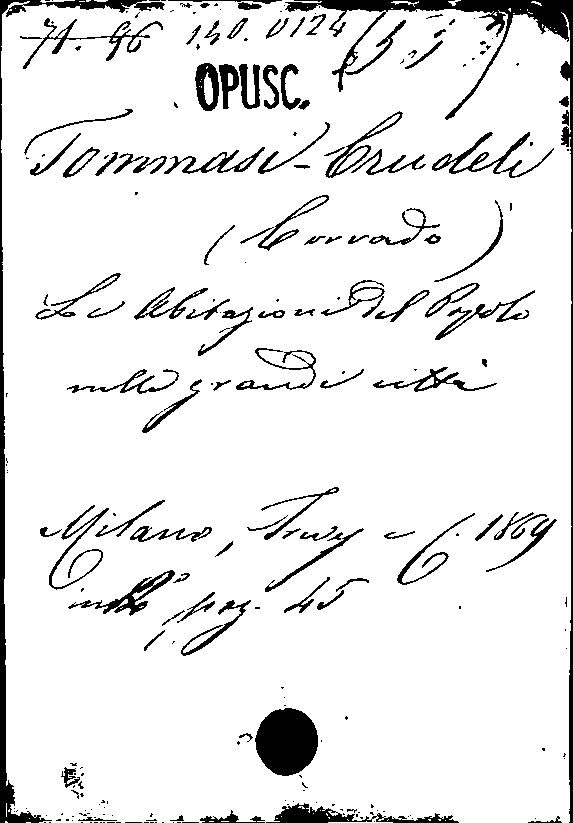 71.96 150.0124 (53)
OPUSC.
Tommasi-Crudeli
(Corrado)
Le Abitazioni del Popolo
nelle grandi città
Milano, Trevy e C. 1869
in 8º, pag. 45